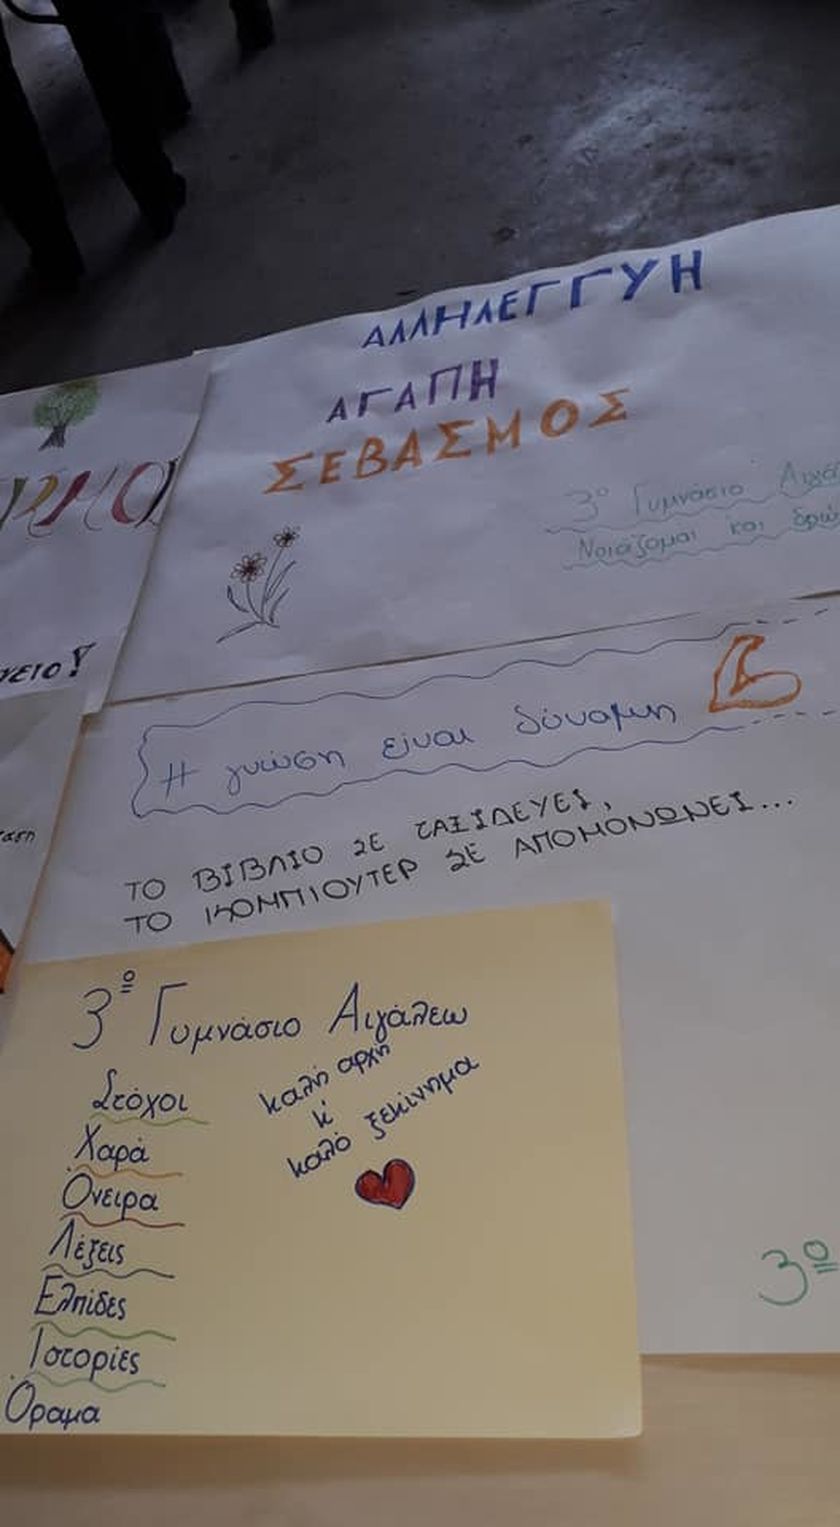 ΑΛΛΗΛΕΓΓΥΗ
ΑΓΑΠΗ
ΣΕΒΑΣΜΟΣ
3º Γυμνάσιο
Νοιάζομαι και
Η γνώση είναι δύναμη
ΤΟ ΒΙΒΛΙΟ ΣΕ ΤΑΞΙΔΕΥΕΙ,
ΤΟ ΚΟΜΠΙΟΥΤΕΡ ΣΕ ΑΠΟΜΟΝΩΝΕΙ...
3º Γυμνάσιο Αιγάλεω
Στόχοι
Χαρά
Όνειρα
Λέξεις
Ελπίδες
Ιστορίες
Όραμα
καλή αρχή
κ'
καλό ξεκίνημα
3º